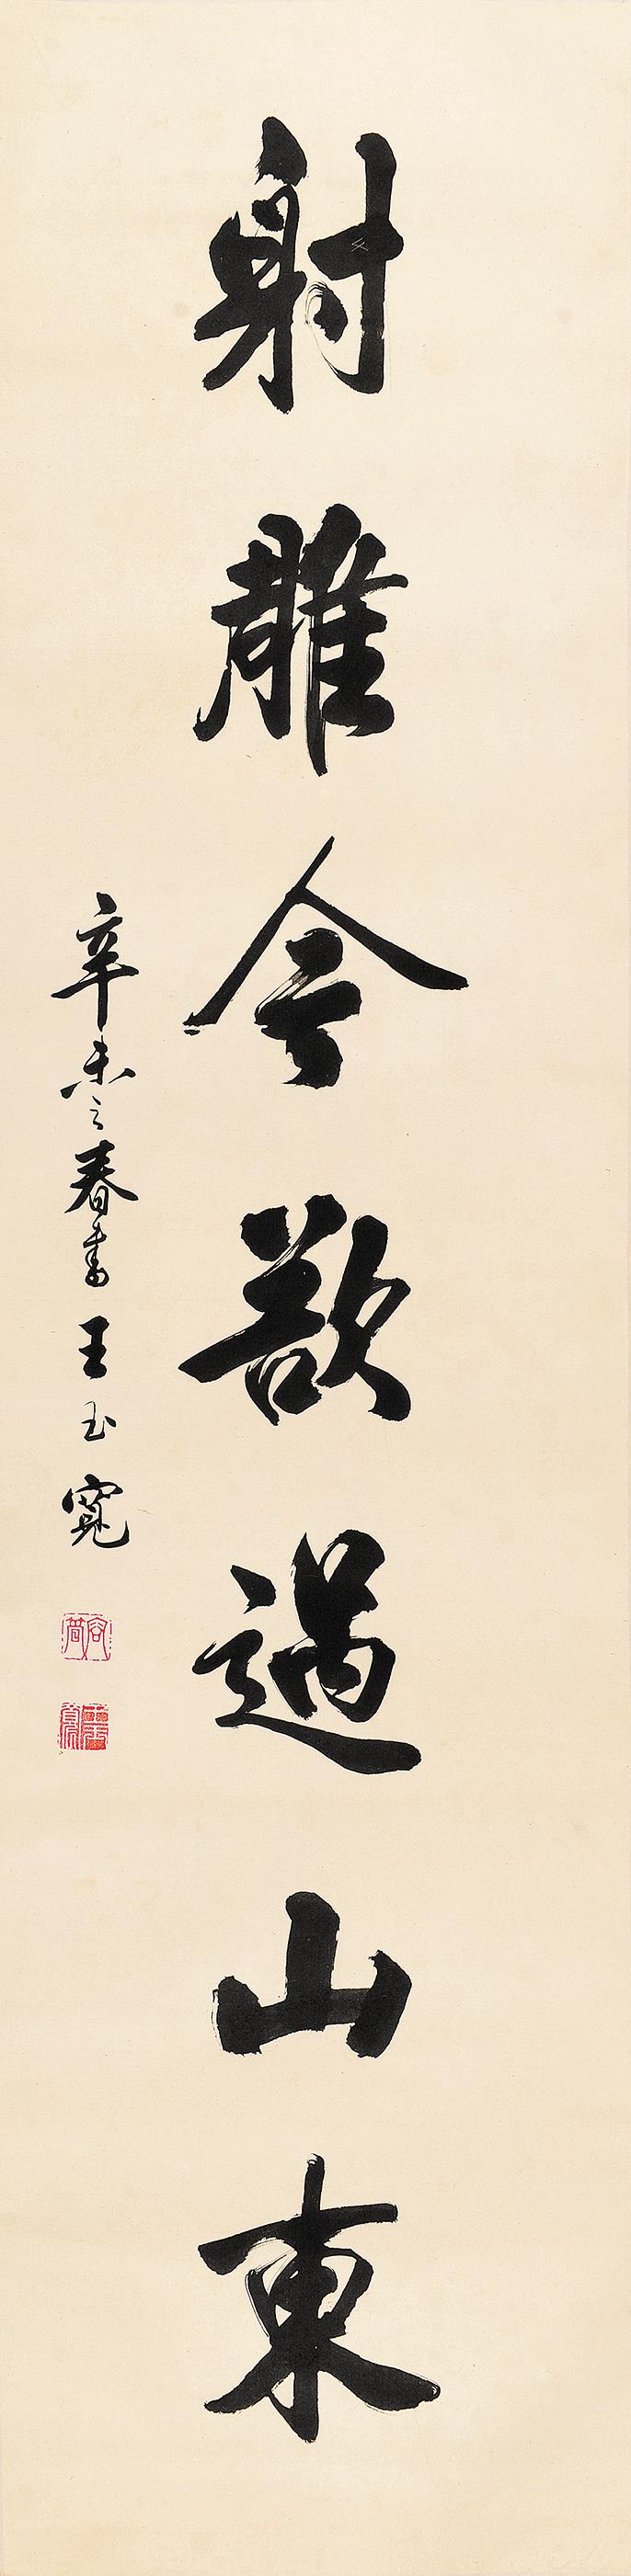 射雕今欲過山東
辛未之春書王玉寬